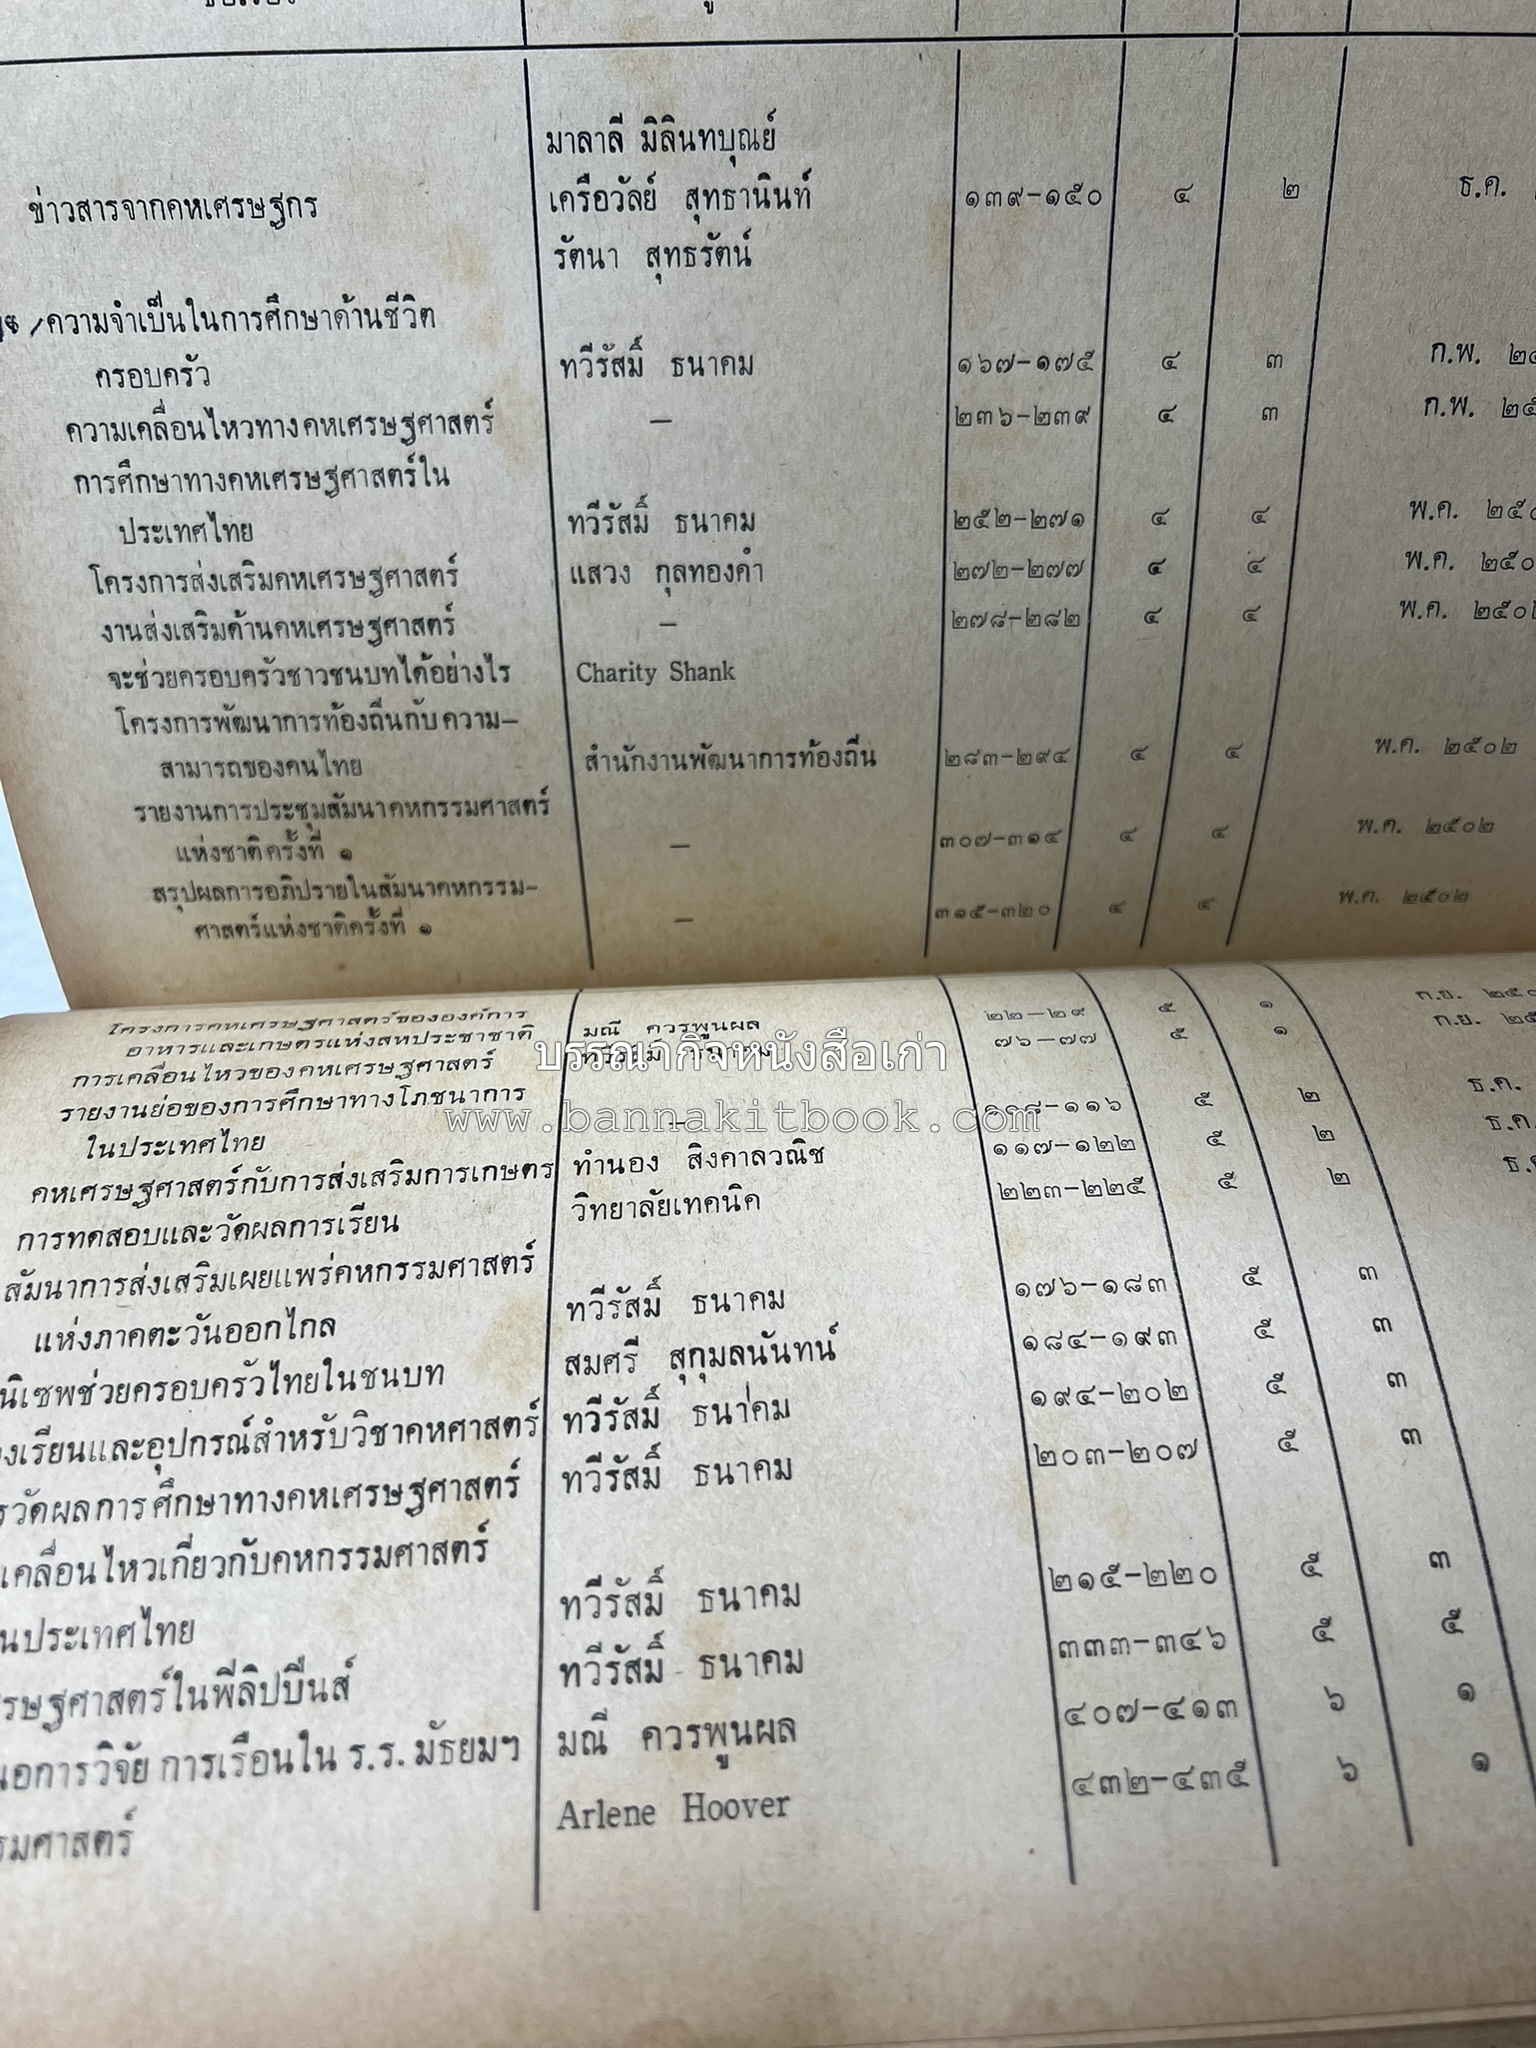 มาลาลี มิลินทบุณย์
ข่าวสารจากคหเศรษฐกร เครือวัลย์ สุทธานินท์ ๑๓๙-๑๕๐ ๔ ๒ ธ.ค.
รัตนา สุทธรัตน์
/ความจำเป็นในการศึกษาด้านชีวิต
ครอบครัว ทวีรัสมิ์ ธนาคม ๑๖๗-๑๗๕ ๔ ๓ ก.พ.
ความเคลื่อนไหวทางคหเศรษฐศาสตร์ — ๒๓๖-๒๓๙ ๔ ๓ ก.พ.
การศึกษาทางคหเศรษฐศาสตร์ใน
ประเทศไทย ทวีรัสมิ์ ธนาคม ๒๕๒-๒๗๑ ๔ ๔ พ.ค.
โครงการส่งเสริมคหเศรษฐศาสตร์ แสวง กุลทองคำ ๒๗๒-๒๗๗ ๔ ๔ พ.ค. ๒๕๐
งานส่งเสริมด้านคหเศรษฐศาสตร์ — ๒๗๘-๒๘๒ ๔ ๔ พ.ค. ๒๕๐๒
จะช่วยครอบครัวชาวชนบทได้อย่างไร Charity Shank
โครงการพัฒนาการท้องถิ่นกับความ-
สามารถของคนไทย สำนักงานพัฒนาการท้องถิ่น ๒๘๓-๒๙๔ ๔ ๔ พ.ค. ๒๕๐๒
รายงานการประชุมสัมนาคหกรรมศาสตร์
แห่งชาติครั้งที่ ๑ — ๓๐๗-๓๑๔ ๔ ๔ พ.ค. ๒๕๐๒
สรุปผลการอภิปรายในสัมนาคหกรรม-
ศาสตร์แห่งชาติครั้งที่ ๑ — ๓๑๕-๓๒๐ ๔ ๔ พ.ค. ๒๕๐๒
โครงการคหเศรษฐศาสตร์ขององค์การ
อาหารและเกษตรแห่งสหประชาชาติ มณี ควรพูนผล ๒๒-๒๙ ๕ ๑ ก.ย. ๒๕๐
การเคลื่อนไหวของคหเศรษฐศาสตร์ ๗๖-๗๗ ๕ ๑ ก.ย.
บรรณากิจหนังสือเก่า
www.bannakitbook.com
รายงานย่อของการศึกษาทางโภชนาการ
ในประเทศไทย — ๕ ๒ ธ.ค.
คหเศรษฐศาสตร์กับการส่งเสริมการเกษตร ทำนอง สิงคาลวณิช ๑๑๗-๑๒๒ ๕ ๒ ธ.ค.
การทดสอบและวัดผลการเรียน วิทยาลัยเทคนิค ๒๒๓-๒๒๕ ๕ ๒
สัมนาการส่งเสริมเผยแพร่คหกรรมศาสตร์
แห่งภาคตะวันออกไกล ทวีรัสมิ์ ธนาคม ๑๗๖-๑๘๓ ๕ ๓
นิเซฟช่วยครอบครัวไทยในชนบท สมศรี สุกุมลนันทน์ ๑๘๔-๑๙๓ ๕ ๓
งเรียนและอุปกรณ์สำหรับวิชาคหศาสตร์ ทวีรัสมิ์ ธนาคม ๑๙๔-๒๐๒ ๕ ๓
รวัดผลการศึกษาทางคหเศรษฐศาสตร์ ทวีรัสมิ์ ธนาคม ๒๐๓-๒๐๗ ๕ ๓
เคลื่อนไหวเกี่ยวกับคหกรรมศาสตร์
นประเทศไทย ทวีรัสมิ์ ธนาคม ๒๑๕-๒๒๐ ๕ ๓
รษฐศาสตร์ในฟิลิปปินส์ ทวีรัสมิ์ ธนาคม ๓๓๓-๓๔๖ ๕ ๕
นอการวิจัย การเรือนใน ร.ร. มัธยมฯ มณี ควรพูนผล ๔๐๗-๔๑๓ ๖ ๑
รมศาสตร์ Arlene Hoover ๔๓๒-๔๓๕ ๖ ๑